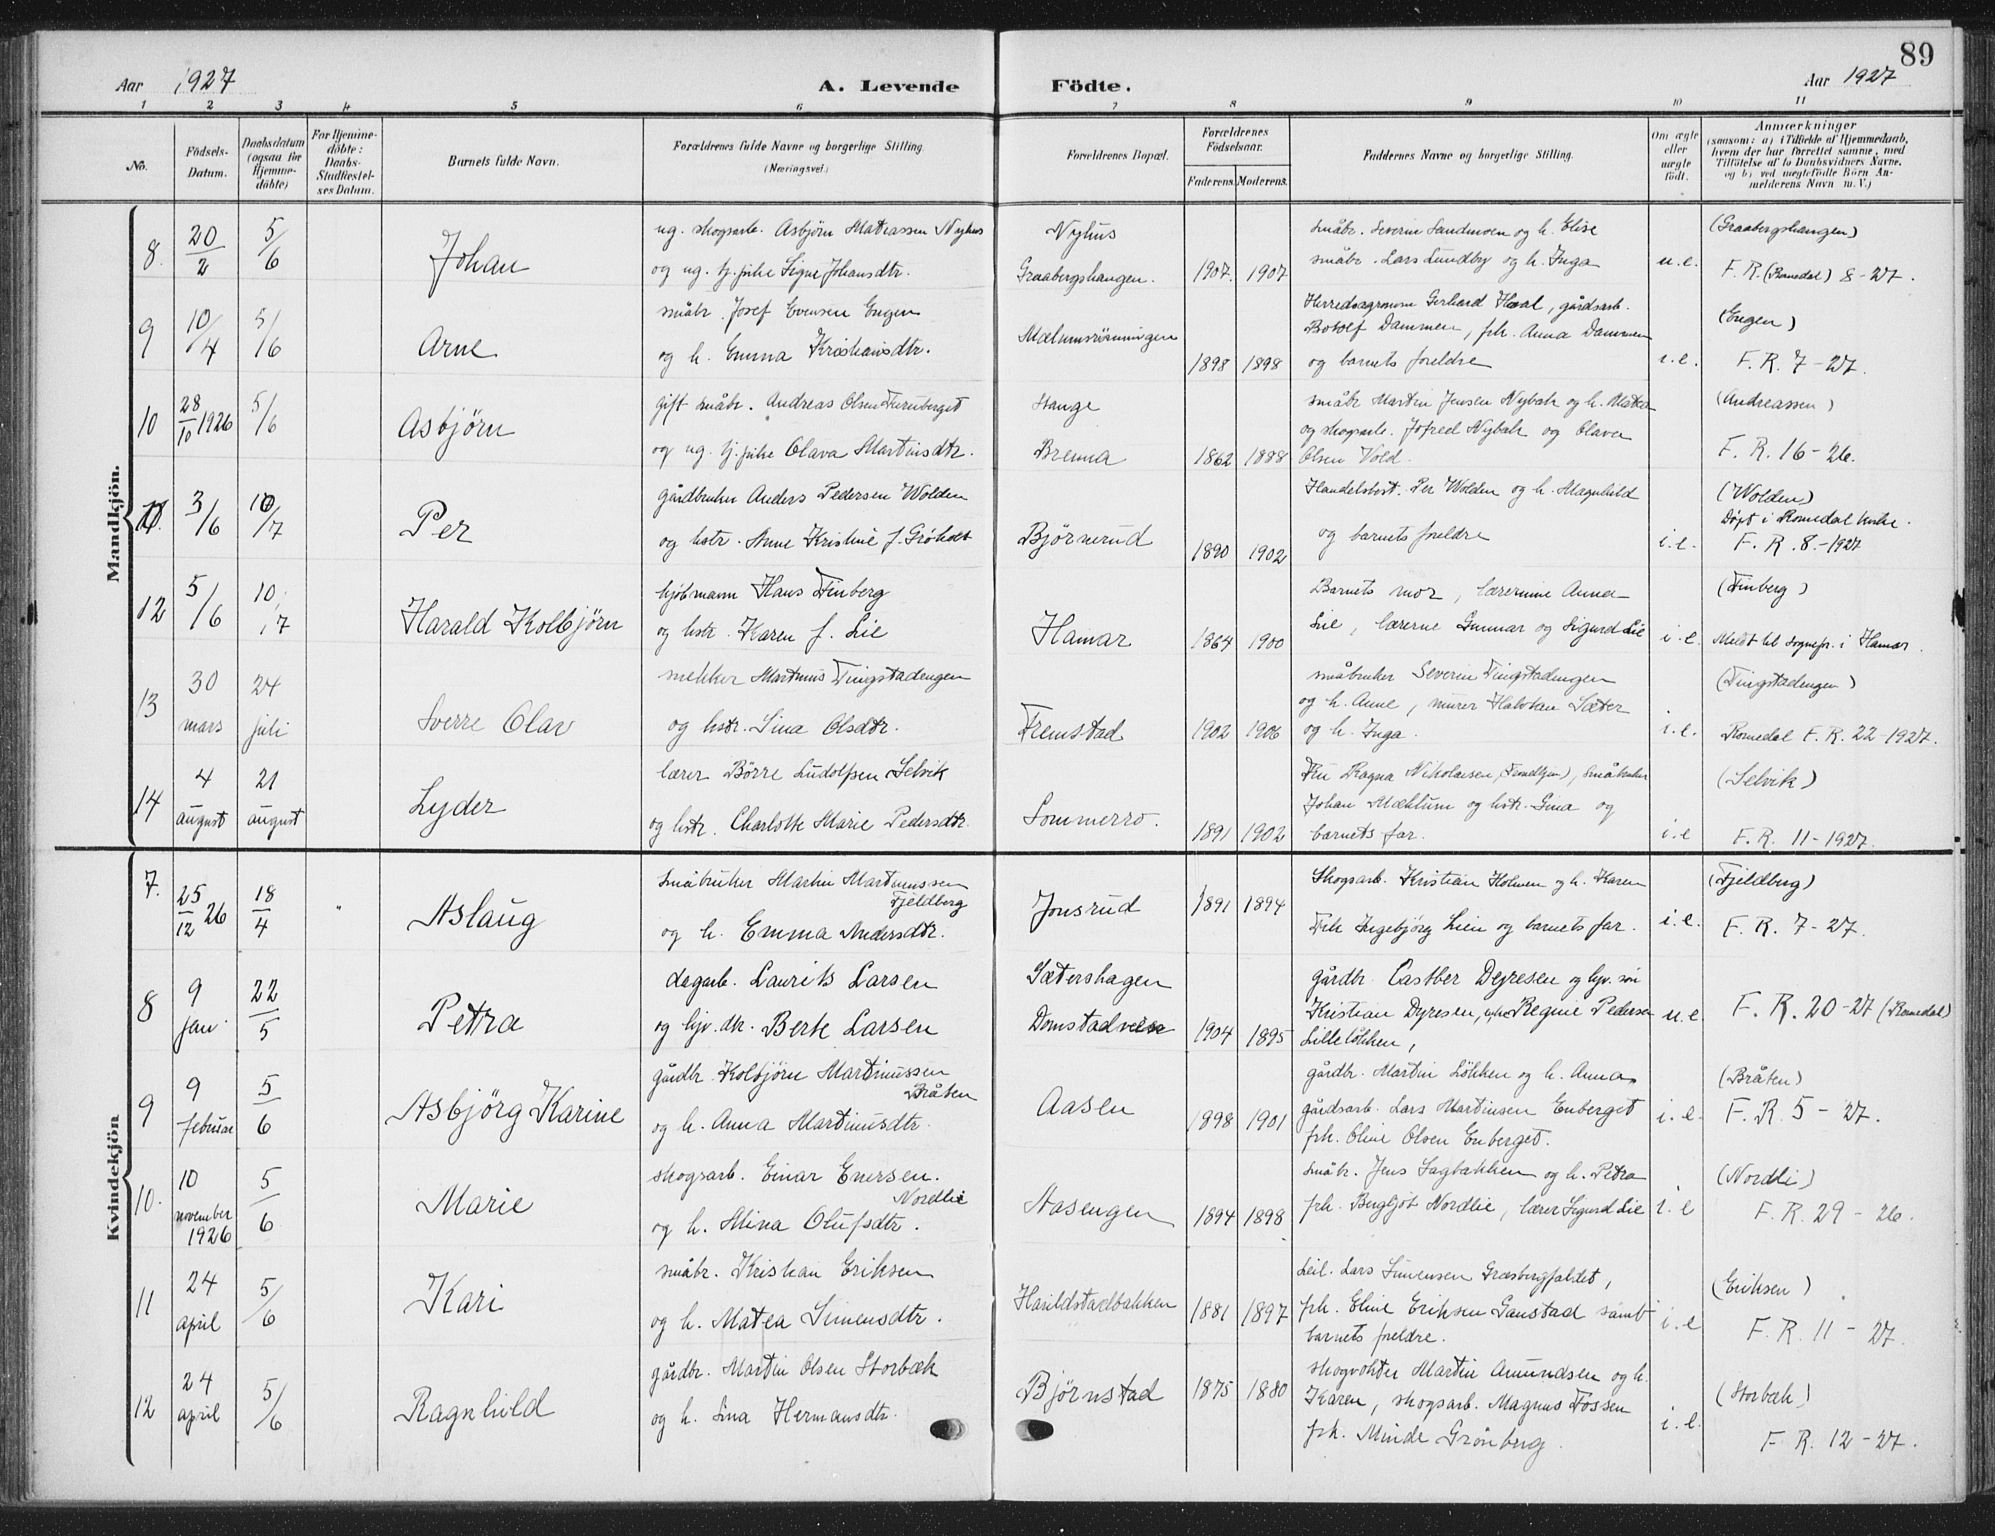 89
Aar 1927 A. Levende Födte. Aar 1927
1 2 3 4 5 6 7 8 9 10 11
No. Födsels-Datum. Daabsdatum (ogsaa for Hjemme-döbte) For Hjemme-döbte: Daabs-Stadfæstel-ses Datum. Barnets fulde Navn. Forældrenes fulde Navne og borgerlige Stilling (Næringsvei.) Forældrenes Bopæl. Forældrenes Födselsaar. Faderens. Moderens. Faddernes Navne og borgerlige Stilling. Om ægte eller uægte födt. Anmærkninger (saasom: a) i Tilfælde af Hjemmedaab, hvem der har forrettet samme, med Tilföielse af to Daabsvidners Navne, og b) ved uægtefödte Börn An-melderens Navn m. V.)
Mandkjön.
8. 20/2 5/6 Johan ug. skogsarb. Asbjörn Matiassen Nyhus
og ug. tj.pike Signe Johansdtr. Nyhus
Graabergshaugen. 1907. 1907 småbr. Severin Sandmoen og h. Elise
småbr. Lars Lundby og h. Inga u.e. (Graabergshaugen)
F.R. (Romedal) 8-27.
9 10/4 5/6 Arne småbr. Josef Evensen Engen
og h. Emma Kristiansdtr. Mælumsrönningen 1898 1898 Herredsagronom Gerhard Hoal, gårdsarb.
Botolf Dammen, frk. Anna Dammen
og barnets foreldre i.e. (Engen)
F.R. 7-27.
10 28/10 1926 5/6 Asbjörn gift småbr. Andreas Olsen Furuberget
og ug. tj.pike Olava Martinsdtr. Stange
Brenna 1862 1888 småbr Martin Jensen Nybak og h. Matea
og skogsarb. Jofred Nybak og Olava
Olsen Vold. (Andreassen)
F.R. 16-26.
11. 3/6 10/7 Per gårdbruker Anders Pedersen Wolden
og hstr. Anne Kristine f. Gröholt Björnerud 1890 1902 Handelsbest. Per Wolden og h. Magnhild
og barnets foreldre i.e. (Wolden)
Döpt i Romedal kirke.
F.R. 8.-1927
12 5/6 10/7 Harald Kolbjörn kjöbmann Hans Finberg
og hstr. Karen f. Lie Hamar 1864 1900 Barnets mor, lærerinne Anna
Lie, lærerne Gunnar og Sigurd Lie i.e. (Finberg)
Meldt til sognepr. i Hamar.
13 30 mars 24 juli Sverre Olav mekker Martinus Tingstadengen
og hstr. Lina Olsdtr. Fremstad 1902 1906 småbruker Severin Tingstadengen
og h. Anne, murer Halvtan Sæter
og h. Inga. i.e. (Tingstadengen)
Romedal F.R. 22-1927.
14 4 august 21 august Lyder lærer Börre Ludolfsen Selvik
og hstr. Charlotte Marie Pedersdtr. Sommerro. 1891 1902 Fru Ragna Nikolaisen, småbruker
Johan Mæhlum og hstr. Gina og
barnets far. i.e (Selvik)
F.R. 11-1927.
Kvindekjön
7. 25/12 26 18/4 Aslaug småbruker Martin Martinussen
Fjeldberg
og h. Emma Andersdtr. Jonsrud 1891 1894 Skogsarb. Kristian Holmen og h. Karen
Frk Ingebjörg Lien og barnets far. i.e. (Fjeldberg)
F.R. 7-27.
8 9 jan. 22/5 Petra dagarb. Laurits Larsen
og hjv. dtr. Berte Larsen Sætershagen
Domstad 1904 1895 gårdbr. Castber Dyresen og hjv. søn
Kristian Dyresen, Regine Pedersen
Lillelökken, u.e. F.R. 20-27 (Romedal)
9 9 februar 5/6 Asbjörg Karine gårdbr. Kolbjörn Martinussen
Bråten
og h. Anna Martinusdtr. Aasen 1898 1901 gårdbr. Martin Lökken og h. Anna
gårdsarb. Lars Martinsen Enberget
frk. Oline Olsen Enberget. i.e. (Bråten)
F.R. 5-27.
10. 10 november 1926 5/6 Marie skogsarb. Einar Enersen.
Nordlie
og h. Mina Olufsdtr. Aasengen 1894 1898 småbr. Jens Sagbakken og h. Petra
frk. Bergljot Nordlie, lærer Sigurd Lie i.e (Nordli)
F.R. 29-26.
11 24 april 5/6 Kari småbr. Kristian Eriksen
og h. Matea Simensdtr. Harildstadbakken 1881 1897 Leil. Lars Simensen Græsbergfaldet,
frk. Eline Eriksen Gaustad samt
barnets foreldre. i.e (Eriksen)
F.R. 11-27.
12 24 april 5/6 Ragnhild gårdbr. Martin Olsen Storbæk
og h. Lina Hermansdtr. Björnstad 1875 1880 skogvokter Martin Amundsen og h.
Karen, skogsarb. Magnus Fossen
frk. Minde Grönberg. i.e. (Storbæk)
F.R. 12-27.